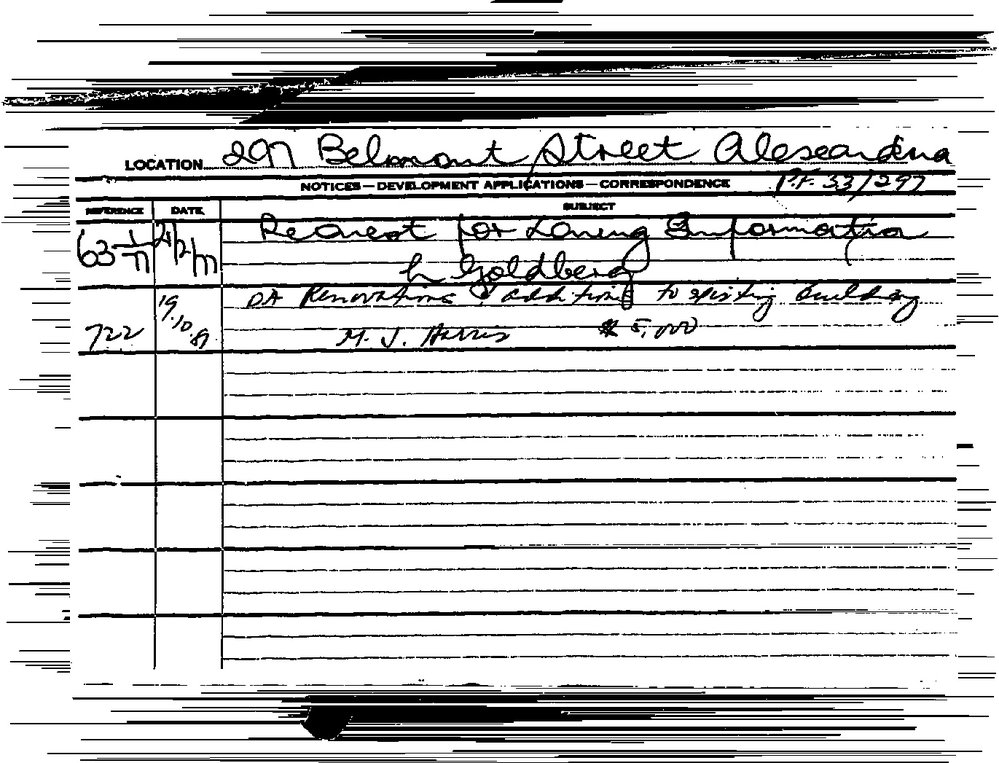 LOCATION 297 Belmont Street Alexandria
NOTICES — DEVELOPMENT APPLICATIONS — CORRESPONDENCE P.F. 33/297
REFERENCE DATE SUBJECT
Request for Zoning Information
L Goldberg
19.10. DA Renovations & additions to existing building
722 M. J. Harris $ 5,000